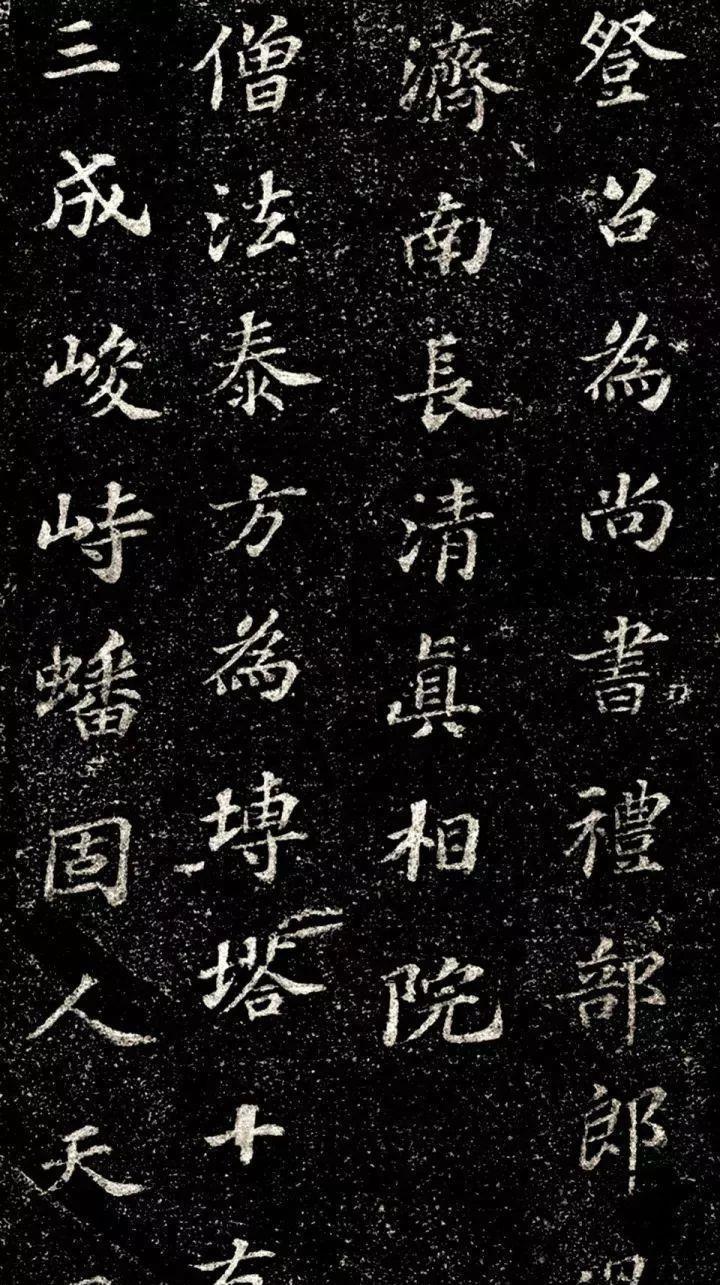 登召為尚書禮部郎過
濟南長清真相院
僧法泰方為塼塔十有
三成峻峙蟠固人天